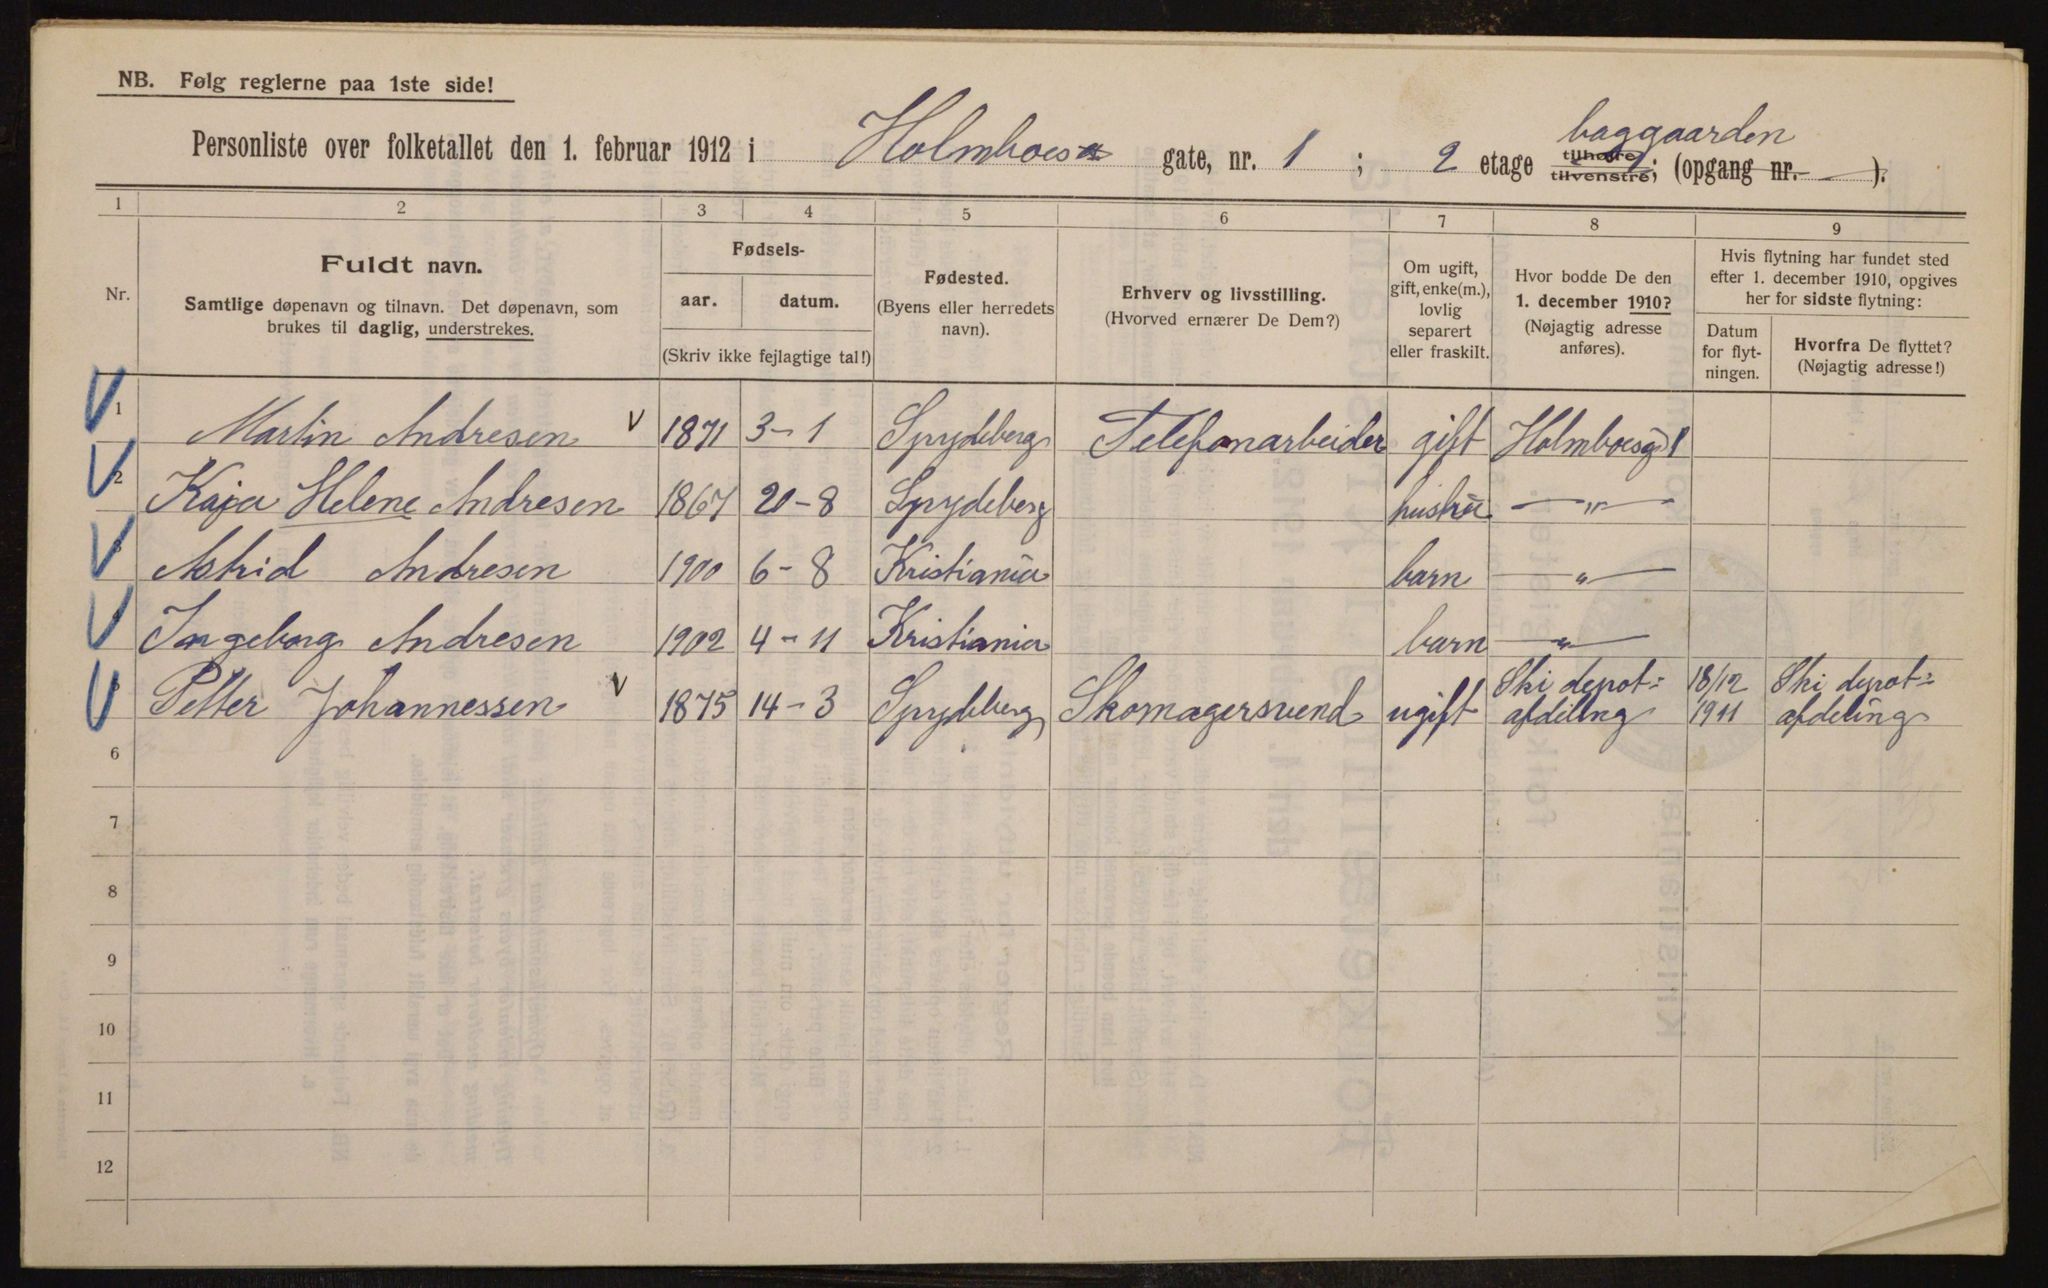 NB. Følg reglerne paa 1ste side!
Personliste over folketallet den 1. februar 1912 i Holmboes gate, nr. 1 ; 2 etage tilhøire tilvenstre; baggaarden (opgang nr. — ).
1 2 3 4 5 6 7 8 9
Nr.
Fuldt navn.
Samtlige døpenavn og tilnavn. Det døpenavn, som
brukes til daglig, understrekes.
Fødsels-
aar. datum.
(Skriv ikke fejlagtige tal!)
Fødested.
(Byens eller herredets
navn).
Erhverv og livsstilling.
(Hvorved ernærer De Dem?)
Om ugift,
gift, enke(m.),
lovlig
separert
eller fraskilt.
Hvor bodde De den
1. december 1910?
(Nøjagtig adresse
anføres).
Hvis flytning har fundet sted
efter 1. december 1910, opgives
her for sidste flytning:
Datum
for flyt-
ningen.
Hvorfra De flyttet?
(Nøjagtig adresse!)
1 Martin Andresen V 1871 3-1 Spydeberg Telefonarbeider gift Holmboesg 1
2 Kaja Helene Andresen 1867 20-8 Spydeberg hustru —„—
Astrid Andresen 1900 6-8 Kristiania barn —„—
Ingeborg Andresen 1902 4-11 Kristiania barn —„—
Petter Johannessen V 1875 14-3 Spydeberg Skomagersvend ugift Ski depot= afdeling 18/12 1911 Ski depot= afdeling
6
7
8
9
10
11
12